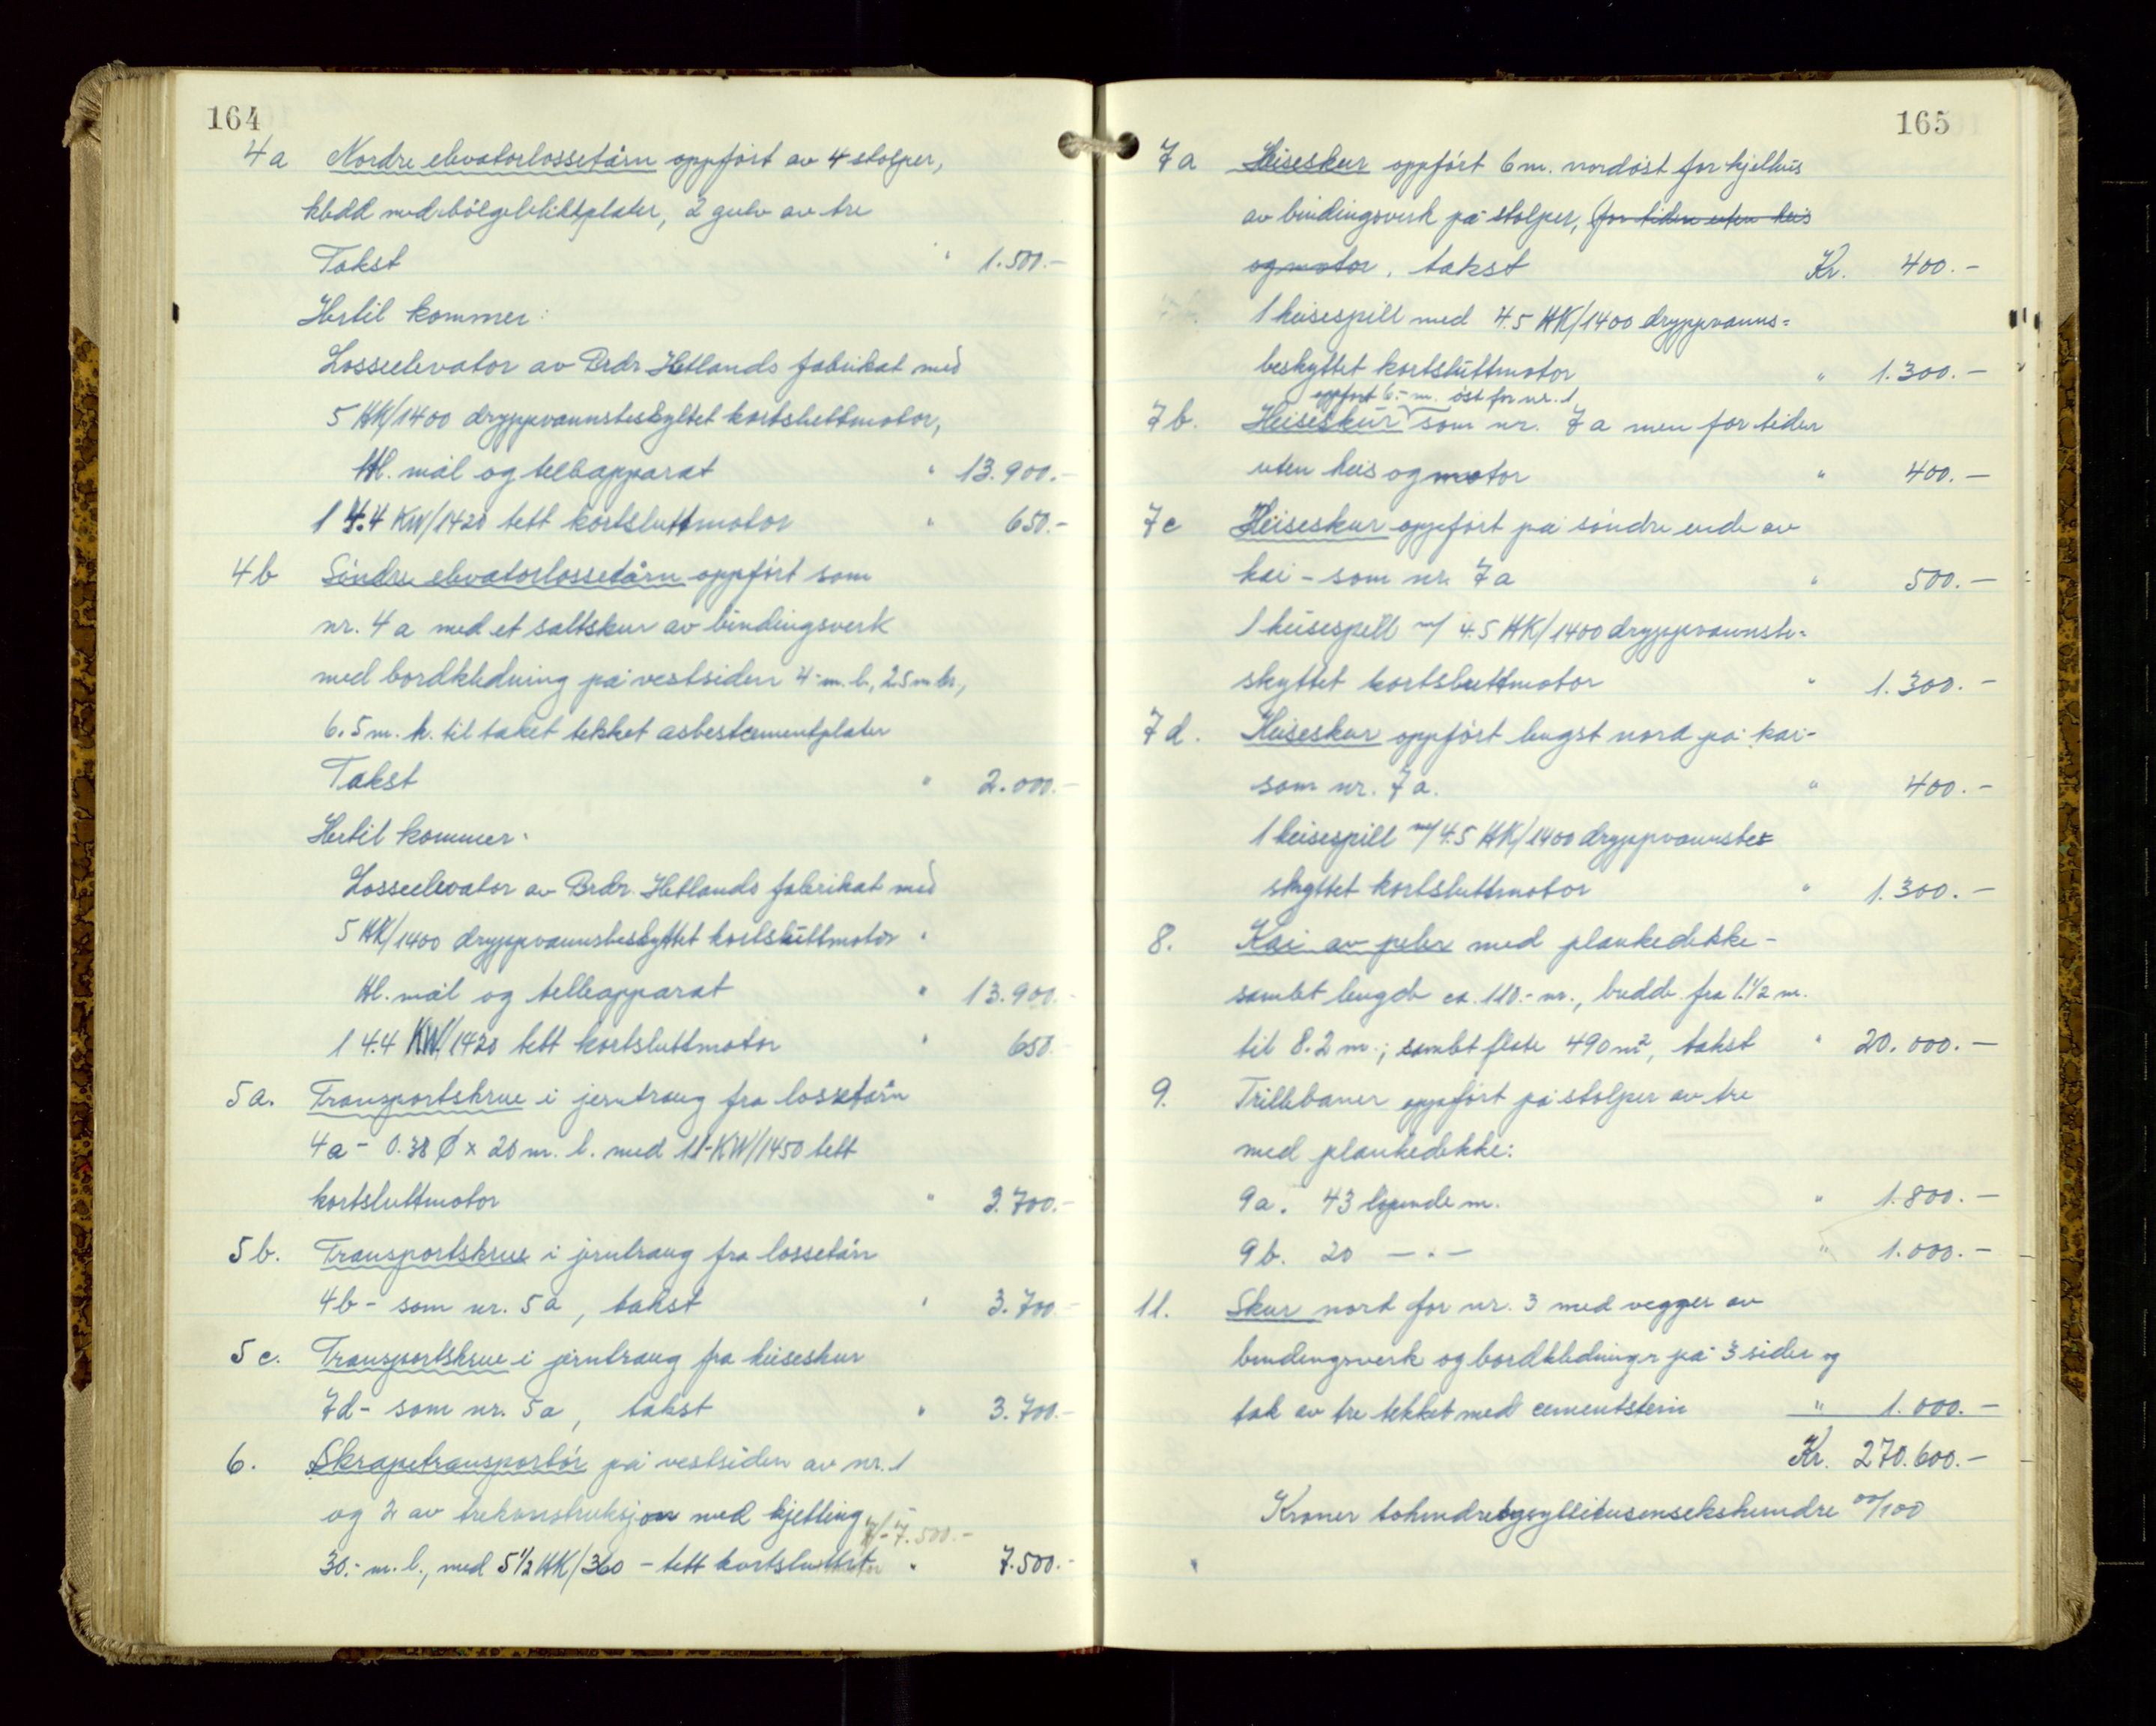 164
4a Nordre elevatorlossetårn oppført av 4 stolper,
kledd med bölgeblikkplater, 2 gulv av tre
Takst " 1.500.-
Hertil kommer:
Losseelevator av Brdr. Hetlands fabrikat med
5 HK/1400 dryppvannsbeskyttet kortsluttmotor,
Hl. mål og telleapparat " 13.900.-
1 4.4 KW/1420 tett kortsluttmotor " 650.-
4b Söndre elevatorlossetårn oppført som
nr. 4a med et saltskur av bindingsverk
med bordkledning på vestsiden 4.- m. l., 2.5 m. br.,
6.5 m. h. til taket tekket asbestcementplater
Takst " 2.000.-
Hertil kommer:
Losseelevator av Brdr. Hetlands fabrikat med
5 HK/1400 dryppvannsbeskyttet kortsluttmotor
Hl. mål og telleapparat " 13.900.-
1 4.4 KW/1420 tett kortsluttmotor " 650.-
5a. Transportskrue i jerntraug fra lossetårn
4a - 0.38 Ø x 20 m. l. med 11-KW/1450 tett
kortsluttmotor " 3.700.-
5b. Transportskrue i jerntraug fra lossetårn
4b - som nr. 5a, takst " 3.700.-
5c. Transportskrue i jerntraug fra heiseskur
7d - som nr. 5a, takst " 3.700.-
6. Skrapetransportör på vestsiden av nr. 1
og 2 av trekonstruksjon med kjetting
7.500.-
30.- m. l., med 5 1/2 HK/360 - tett kortsluttmotor " 7.500.-
165
7a Heiseskur oppfört 6 m. nordöst for kjelhus
av bindingsverk på stolper, (for tiden uten heis
og motor, takst Kr. 400.-
1 heisespill med 4.5 HK/1400 dryppvanns=
beskyttet kortsluttmotor " 1.300.-
oppfört 6.- m. öst for nr. 1
7b. Heiseskur som nr. 7a men for tiden
uten heis og motor " 400.-
7c Heiseskur oppfört på söndre ende av
kai - som nr. 7a " 500.-
1 heisespill m/ 4.5 HK/1400 dryppvannsbe=
skyttet kortsluttmotor " 1.300.-
7d. Heiseskur oppfört lengst nord på kai-
som nr. 7a. " 400.-
1 heisespill m/ 4.5 HK/1400 dryppvannsbe=
skyttet kortsluttmotor " 1.300.-
8. Kai av peler med plankedekke -
samlet lengde ca. 110.- m., bredde fra 1.1/2 m.
til 8.2 m.; samlet flate 490 m², takst " 20.000.-
9. Trillebaner oppfört på stolper av tre
med plankedekke:
9a. 43 löpende m. " 1.800.-
9b. 20 - " - " 1.000.-
11. Skur nord for nr. 3 med vegger av
bindingsverk og bordkledninger på 3 sider og
tak av tre tekket med cementstein " 1.000.-
Kr. 270.600.-
Kroner tohundreogsyttitusensekshundre 00/100